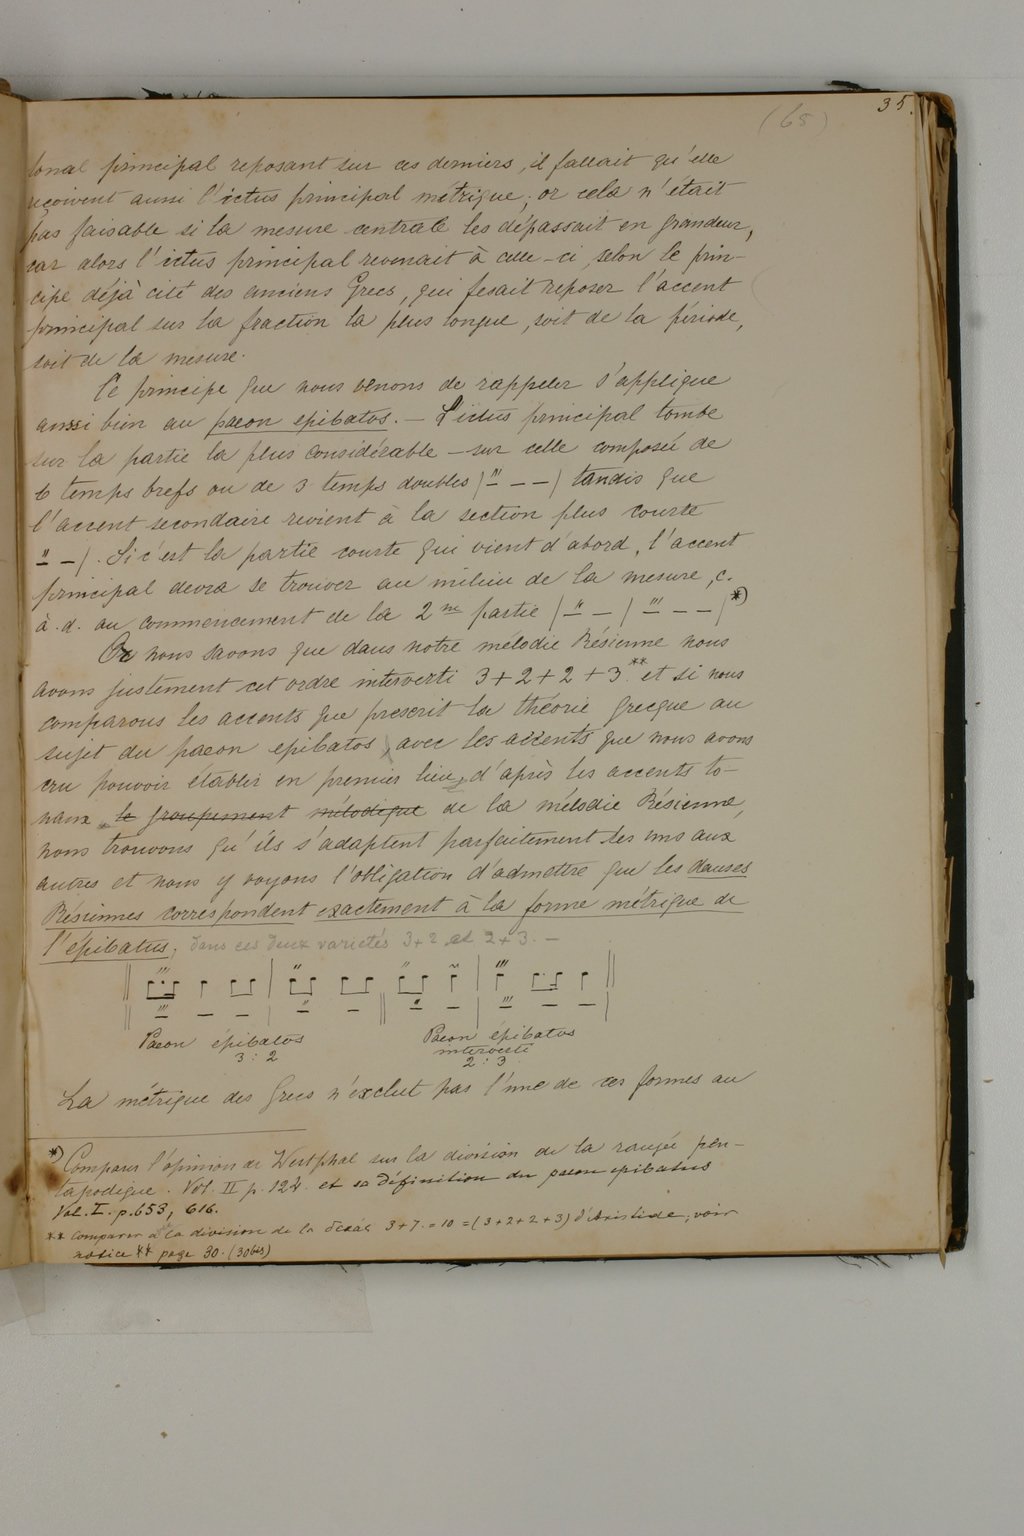 35.
(65)
tonal principal reposant sur ces derniers, il fallait qu'elle
reçoivent aussi l'ictus principal métrique; or cela n'était
pas faisable si la mesure centrale les dépassait en grandeur,
car alors l'ictus principal revenait à celle-ci, selon le prin-
cipe déjà cité des anciens Grecs, qui fesait reposer l'accent
principal sur la fraction la plus longue, soit de la période,
soit de la mesure.
Ce principe que nous venons de rappeler s'applique
aussi bien au paeon epibatos. — L'ictus principal tombe
sur la partie la plus considérable — sur celle composée de
6 temps brefs ou de 3 temps doubles | ''' — — — | tandis que
l'accent secondaire revient à la section plus courte
'' — — |. Si c'est la partie courte qui vient d'abord, l'accent
principal devra se trouver au milieu de la mesure, c.
à. d. au commencement de la 2me partie | '' — — | ''' — — — | *)
Or nous savons que dans notre mélodie Résienne nous
avons justement cet ordre interverti 3+2+2+3.** et si nous
comparons les accents que prescrit la théorie grecque au
sujet du paeon epibatos, avec les accents que nous avons
cru pouvoir établir en premier lieu, d'après les accents to-
naux le groupement mélodique de la mélodie Résienne,
nous trouvons qu'ils s'adaptent parfaitement les uns aux
autres et nous y voyons l'obligation d'admettre que les danses
Résiennes correspondent exactement à la forme métrique de
l'épibatus, dans ces deux varietés 3+2 et 2+3. —
Paeon épibatos
3:2
Paeon épibatos
interverti
2:3
La métrique des Grecs n'exclut pas l'une de ces formes au
*) Comparer l'opinion de Westphal sur la division de la rangée pen-
tapodique. Vol. II p. 124. et sa définition du paeon epibatus
Vol. I. p. 653, 616.
** Comparer à la division de la 3+7.=10=(3+2+2+3) d'Aristide, voir
notice ** page 30. (30bis)